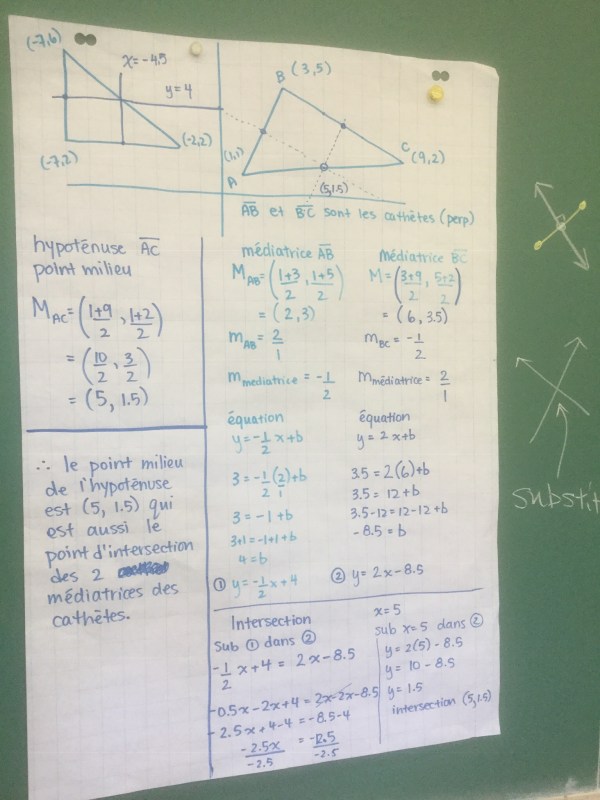 (-7,6)
x=-4,5
y=4
(-2,2)
(-7,2)
B (3,5)
(1,1)
A
C
(9,2)
(5,1.5)
AB et BC sont les cathètes (perp)
hypoténuse AC
point milieu
M_AC = (1+9/2, 1+2/2)
= (10/2, 3/2)
= (5, 1.5)
∴ le point milieu
de l'hypoténuse
est (5, 1.5) qui
est aussi le
point d'intersection
des 2
médiatrices des
cathètes.
médiatrice AB
M_AB = (1+3/2, 1+5/2)
= (2,3)
m_AB = 2/1
m médiatrice = -1/2
équation
y=-1/2 x+b
3=-1/2(2/1)+b
3=-1+b
3+1=-1+1+b
4=b
① y=-1/2 x+4
médiatrice BC
M=(3+9/2, 5+2/2)
= (6, 3.5)
m_BC = -1/2
m médiatrice = 2/1
équation
y=2x+b
3.5=2(6)+b
3.5=12+b
3.5-12=12-12+b
-8.5=b
② y=2x-8.5
Intersection
Sub ① dans ②
-1/2 x+4 = 2x-8.5
-0.5x-2x+4=2x-2x-8.5
-2.5x+4-4=-8.5-4
-2.5x/-2.5 = -12.5/-2.5
x=5
sub x=5 dans ②
y=2(5)-8.5
y=10-8.5
y=1.5
intersection (5,1.5)
substit